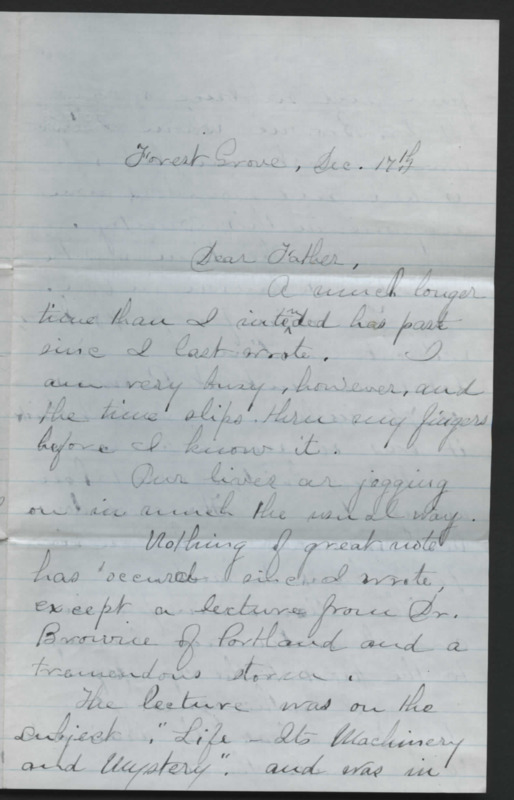 Forest Grove, Dec. 17th
Dear Father,
A much longer
time than I intended has past
since I last wrote. I
am very busy, however, and
the time slips thru my fingers
before I know it.
Our lives ar jogging
on in much the usual way.
Nothing of great note
has occured since I wrote,
except a lecture from Dr.
Brownice of Portland and a
tremendous storm.
The lecture was on the
subject, "Life - Its Machinery
and Mystery". and was in